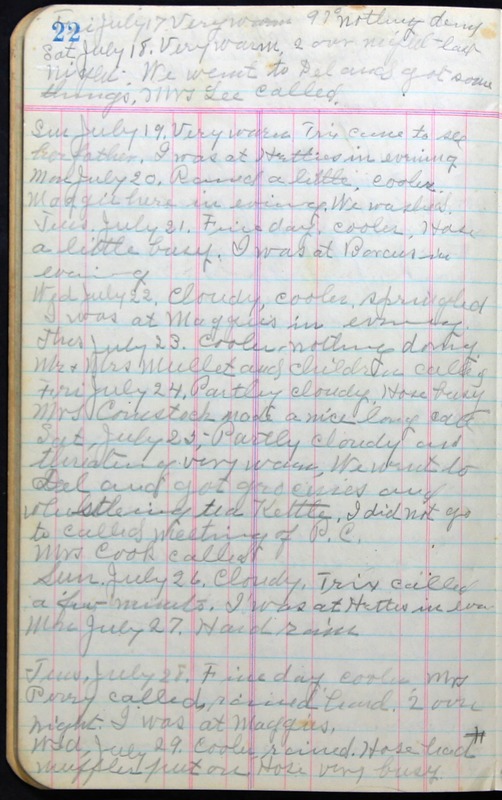 22
Fri July 17 Very warm 97° nothing doing
Sat July 18. Very warm, 2 over night last
night. We went to Del and got some
things, Mrs Lee called.
Sun July 19. Very warm Trix came to see
her father. I was at Hetties in evening
Mon July 20. Rained a little, cooler.
Maggie here in evening. We washed.
Tues. July 21. Fine day, cooler, Hose
a little busy. I was at Borcus in
evening
Wed July 22. Cloudy, cooler, sprinkled
I was at Maggies in evening.
Thurs July 23. Cooler nothing doing
Mr & Mrs Mullet and children called
Fri July 24, Partley cloudy, Hose busy
Mrs Comstock made a nice long call
Sat, July 25- Partly cloudy and
threatning very warm, We went to
Del and got groceries and
whistleing tea Kettle, I did not go
to called meeting of P.C.
Mrs Cook called
Sun. July 26. Cloudy. Trix called
a few minuts. I was at Hetties in eve
Mon July 27. Hard rain
Tues, July 28. Fine day cooler Mrs
Perry called, rained hard. 2 over
night. I was at Maggies.
Wed, July 29. Cooler, rained. Hose had
muffler put on Hose very busy.